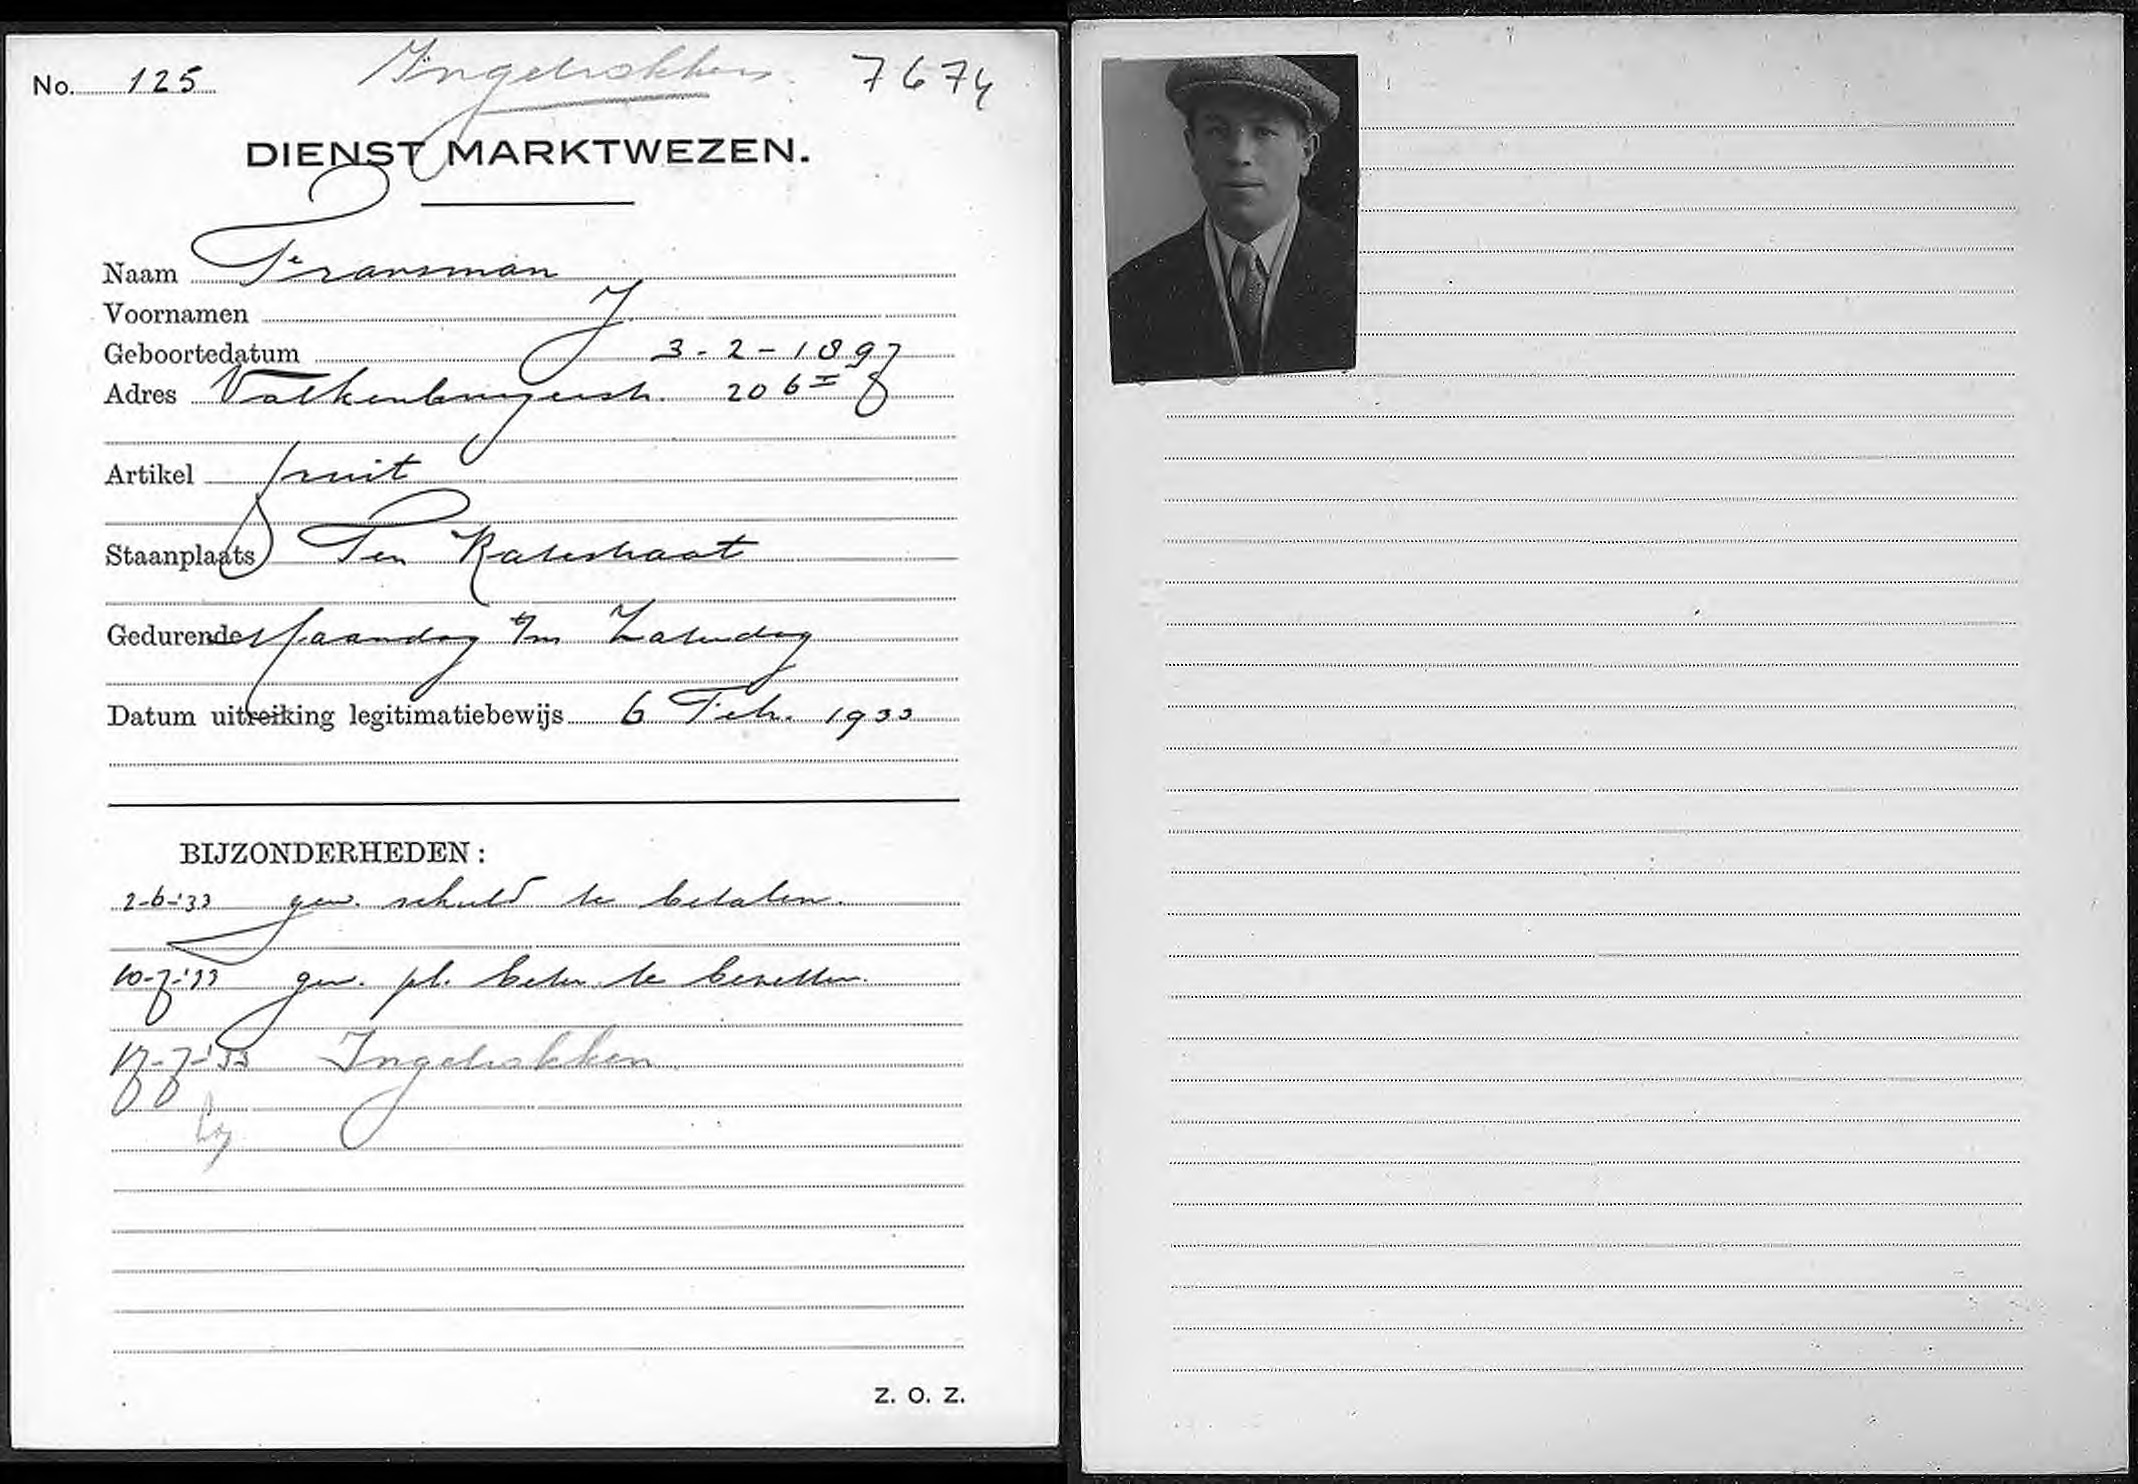 No. 125 Ingetrokken 7674
DIENST MARKTWEZEN.
Naam Fransman
Voornamen J.
Geboortedatum 3-2-1897
Adres Valkenburgerstr. 206 I
Artikel fruit
Staanplaats Ten Katestraat
Gedurende Maandag t/m Zaterdag
Datum uitreiking legitimatiebewijs 6 Feb. 1933
BIJZONDERHEDEN:
2-6-'33 gew. schuld te betalen.
10-7-'33 gew. pl. beter te bezetten.
17-7-'33 Ingetrokken
Z. O. Z.